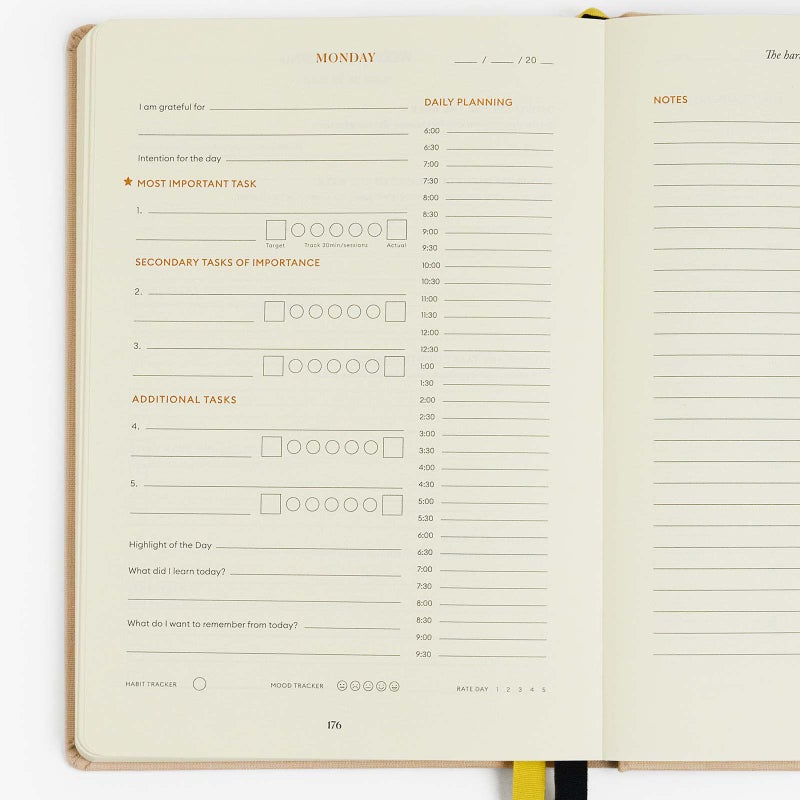 MONDAY
___ / ___ / 20 __
I am grateful for
Intention for the day
MOST IMPORTANT TASK
1.
Target Track 30min/sessions Actual
SECONDARY TASKS OF IMPORTANCE
2.
3.
ADDITIONAL TASKS
4.
5.
Highlight of the Day
What did I learn today?
What do I want to remember from today?
HABIT TRACKER
MOOD TRACKER
DAILY PLANNING
6:00
6:30
7:00
7:30
8:00
8:30
9:00
9:30
10:00
10:30
11:00
11:30
12:00
12:30
1:00
1:30
2:00
2:30
3:00
3:30
4:00
4:30
5:00
5:30
6:00
6:30
7:00
7:30
8:00
8:30
9:00
9:30
RATE DAY 1 2 3 4 5
176
The har
NOTES